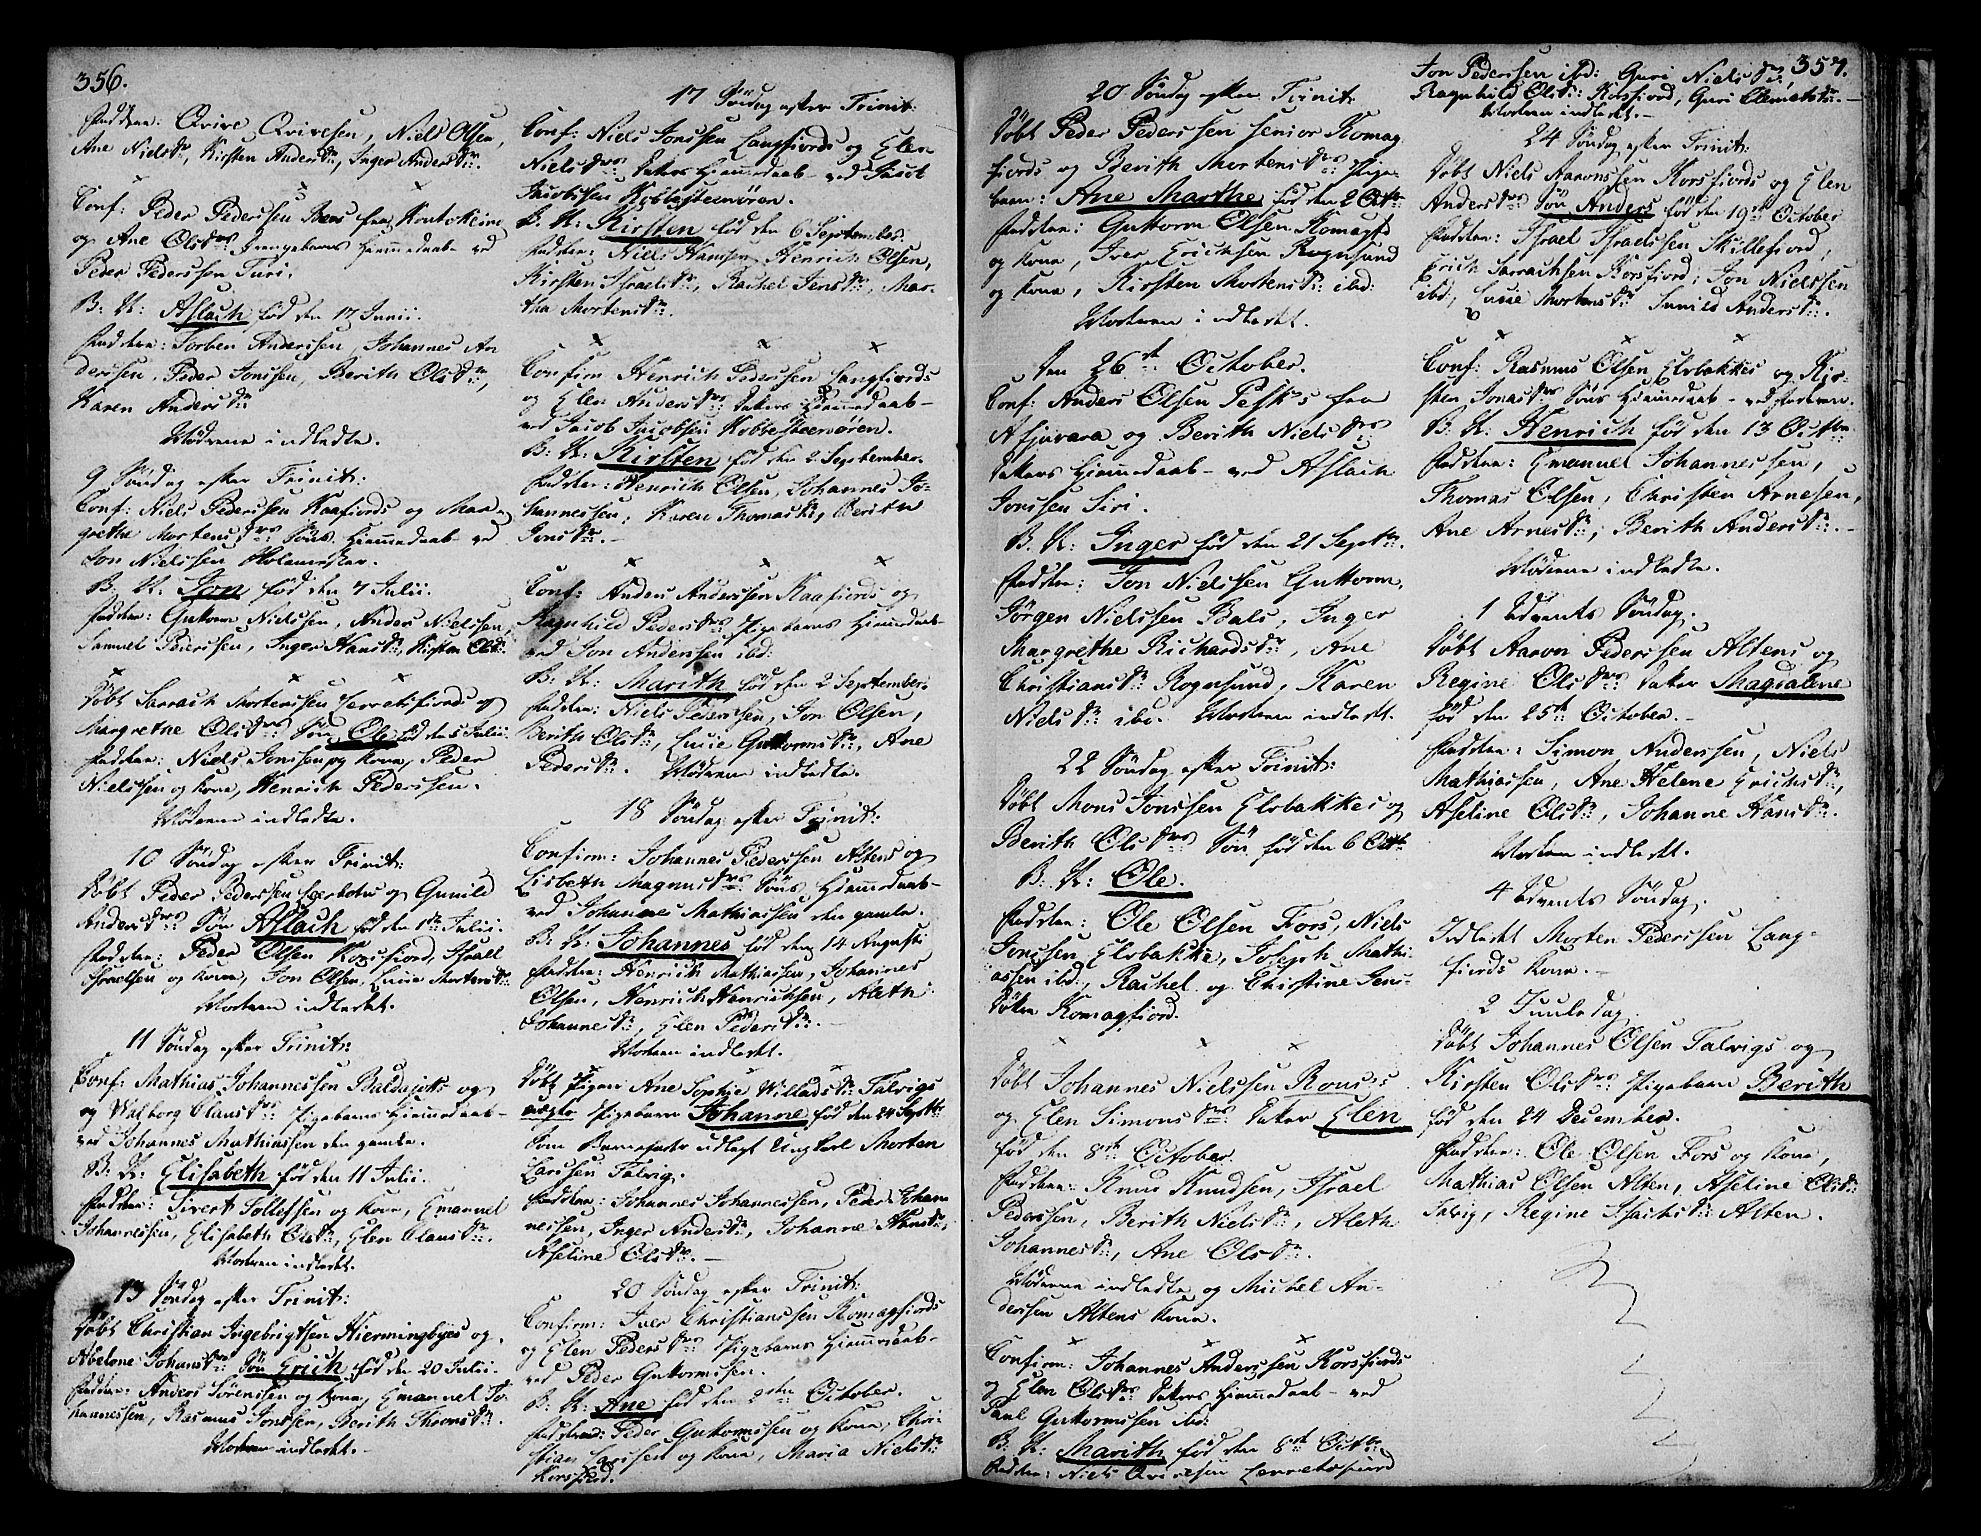 356.
Faddere: Qvive Qvivesen, Niels Olsen,
Ane Nielsdr, Kirsten Andersdr, Inger Andersdr.
Conf: Peder Pederssen Bers fra Koutokeino
og Ane Olsdrs Drengebarns Hiemmedaab ved
Peder Pederssen Turi.
B: N: Aslach fød den 17 Junii.
Faddere: Torben Anderssen, Johannes An
derssen, Peder Jonssen, Berith Olsdr,
Karen Andersdr
Mødrene indledte.
9 Søndag efter Trinit:
Conf: Niels Pederssen Kaafiords og Mar
grethe Mortensdrs Søns Hiemmedaab ved
Jon Nielssen
B: N: Jon fød den 7 Julii.
Faddere: Guttorm Nielssen, Anders Nielssen,
Samuel Pederssen, Inger Hansdr, Kirsten Olsdr
Døbt Sarrach Mortenssen Lerretsfiords og
Margrethe Olsdrs Søn Ole fød den 5 Julii.
Faddere: Niels Jonssen og Kone, Peder
Nielssen og Kone, Henrich Pederssen.
Mødrene indledte.
10 Søndag efter Trinit:
Døbt Peder Pederssen og Gunild
Andersdrs Søn Aslach fød den Julii.
Faddere: Peder Olsen Korsfiord, Israel
Israelsen og Kone, Jon Olsen, Lucie Mortensdr
Moderen indledet.
11 Søndag efter Trinit:
Conf: Mathias Johannessen og
og Walborg Clausdrs Pigebarns Hiemmedaab
ved Johannes Mathiassen den gamle.
B: N: Elisabeth fød den 11 Julii.
Faddere: Sivert Tollefsen og Kone, Emanuel
Johannessen, Elisabeth Olsdr, Elen Clausdr.
Moderen indledet.
13 Søndag efter Trinit:
Døbt Christian Ingebrigtsen Hiermingbyes og
Abelone Johansdrs Søn Erich fød den 20 Julii.
Faddere: Anders Sørenssen og Kone, Emanuel Jo
hannessen, Rasmus Jonssen, Berith Thomasdr.
Moderen indledet.
17 Søndag efter Trinit:
Conf: Niels Jonssen Langfiords og Elen
Nielsdrs Datters Hiemmedaab ved Jacob
Jacobssen Kobbesteenøren.
B. N: Kirsten fød den 6 September.
Faddere: Niels Hanssen, Henrich Olsen,
Kirsten Israelsdr, Rachel Jensdr, Mar
tha Mortensdr.
Confirm Henrich Pederssen Langfiords
og Elen Andersdrs Datters Hiemmedaab
ved Jacob Jacobsen Kobbesteenøren.
B: N: Kirsten fød den 2 September.
Faddere: Henrich Olsen, Johannes Jo-
hannessen, Karen Thomasdr, Berith
Jonsdr.
Conf: Anders Anderssen Kaafiords og
Ragnhild Pedersdrs Pigebarns Hiemmedaab
ved Jon Anderssen ibd:
B. N: Marith fød den 2 September.
Faddere: Niels Pederssen, Jon Olsen,
Berith Olsdr, Lucie Guttormsdr, Ane
Pedersdr. Mødrene indledte.
18 Søndag efter Trinit:
Confirm: Johannes Pederssen Altens og
Lisbeth Magnusdrs Søns Hiemmedaab
ved Johannes Mathiassen den gamle.
B: N: Johannes fød den 14 Augusti
Faddere: Henrich Mathiassen, Johannes
Olsen, Henrich Henrichsen, Aleth
Johannesdr, Elen Pedersdr.
Moderen indledet.
Døbt Pigen Ane Sophie Willadsdr Talvigs
uægte Pigebarn Johanne fød den 24 Septbr
Som Barnefader udlagt Ungkarl Morten
Larssen Talvig.
Faddere: Johannes Johannessen, Peder Johan
nessen, Inger Andersdr, Johanne Hansdr,
Aseline Olsdr.
20 Søndag efter Trinit:
Confirm: Iver Christianssen Komagfiords
og Elen Pedersdrs Pigebarns Hiemmedaab
ved Peder Guttormssen.
B: N: Ane fød den 2den October.
Faddere: Peder Guttormssen og Kone, Chri-
stian Larssen og Kone, Maria Nielsdr
Korsfiord.
20 Søndag efter Trinit:
Døbt Peder Pederssen senior Komag
fiords og Berith Mortensdrs Pige
barn: Ane Marthe fød den 2 Octbr
Faddere: Guttorm Olsen Komagf
og Kone, Iver Erichsen Rognsund
og Kone, Kirsten Mortensdr ibd:
Moderen indledet.
Den 26de October.
Conf: Anders Olsen Pesk's fra
Afjuvara og Berith Nielsdrs
Datters Hiemmedaab ved Aslach
Jonssen Siri.
B. N: Inger fød den 21 Septbr.
Faddere: Jon Nielssen Guttorm,
Jørgen Nielssen Bals, Inger
Margrethe Richardsdr, Ane
Christiansdr Rognsund, Karen
Nielsdr ibd. Moderen indledet.
22 Søndag efter Trinit:
Døbt Mons Jonssen Elvbakkes og
Berith Olsdrs Søn fød den 6 Octb
B: N: Ole.
Faddere: Ole Olsen Fors, Niels
Jonssen Elvbakke, Joseph Mathi-
assen ibd, Rachel og Christine Jens-
døtre Komagfiord.
Døbt Johannes Nielssen
og Elen Simonsdrs Datter Elen
fød den 8de October.
Faddere: Knud Knudsen, Israel
Pederssen, Berith Nielsdr, Aleth
Johannesdr, Ane Olsdr.
Mødrene indledte og Michel An-
derssen Altens Kone.
Confirm: Johannes Anderssen Korsfiords
og Elen Olsdrs Datters Hiemmedaab ved
Paul Guttormssen ibd:
B: N: Marith fød den 8de Octbr
Faddere: Niels Qvivesen Lerretsfiord
357.
Jon Pederssen ibd: Guri Nielsdr
Ragnhild Olsdr Korsfiord, Guri Clemetsdr.
Moderen indledet.
24 Søndag efter Trinit:
Døbt Niels Aaronssen Korsfiords og Elen
Andersdrs Søn Anders fød den 19de October
Faddere: Israel Israelssen Skillefiord,
Erich Sarrachsen Korsfiord, Jon Nielssen
ibd:, Lucie Mortensdr Gunild Andersdr.
Conf: Rasmus Olsen Elvbakkes og Kir-
sten Jonasdrs Søns Hiemmedaab ved Faderen.
B: N: Henrich fød den 13 Octbr
Faddere: Emanuel Johannessen,
Thomas Olsen, Christen Arnesen,
Ane Arnesdr, Berith Andersdr.
Mødrene indledte.
1 Advents Søndag.
Døbt Aaron Pederssen Altens og
Regine Olsdrs Datter Magdalene
fød den 25de October.
Faddere: Simon Anderssen, Niels
Mathiassen, Ane Helene Erichsdr,
Aseline Olsdr, Johanne Hansdr.
Moderen indledet.
4 Advents Søndag.
Indledet Morten Pederssen Lang-
fiords Kone.
2 Juuledag
Døbt Johannes Olsen Talvigs og
Kirsten Olsdrs Pigebarn Berith
fød den 24 December.
Faddere: Ole Olsen Fors og Kone,
Mathias Olsen Alten, Aseline Olsdr
Talvig, Regine Isachsdr Alten.